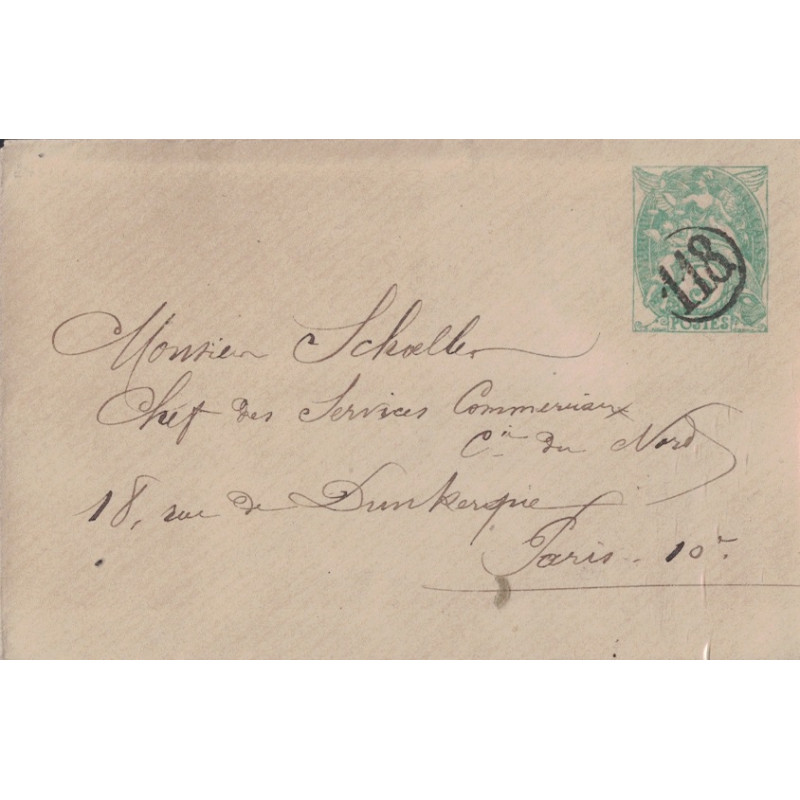 118
POSTES
Monsieur Schoeller
Chef des Services Commerciaux
Cie du Nord
18, rue de Dunkerque
Paris. 10e.